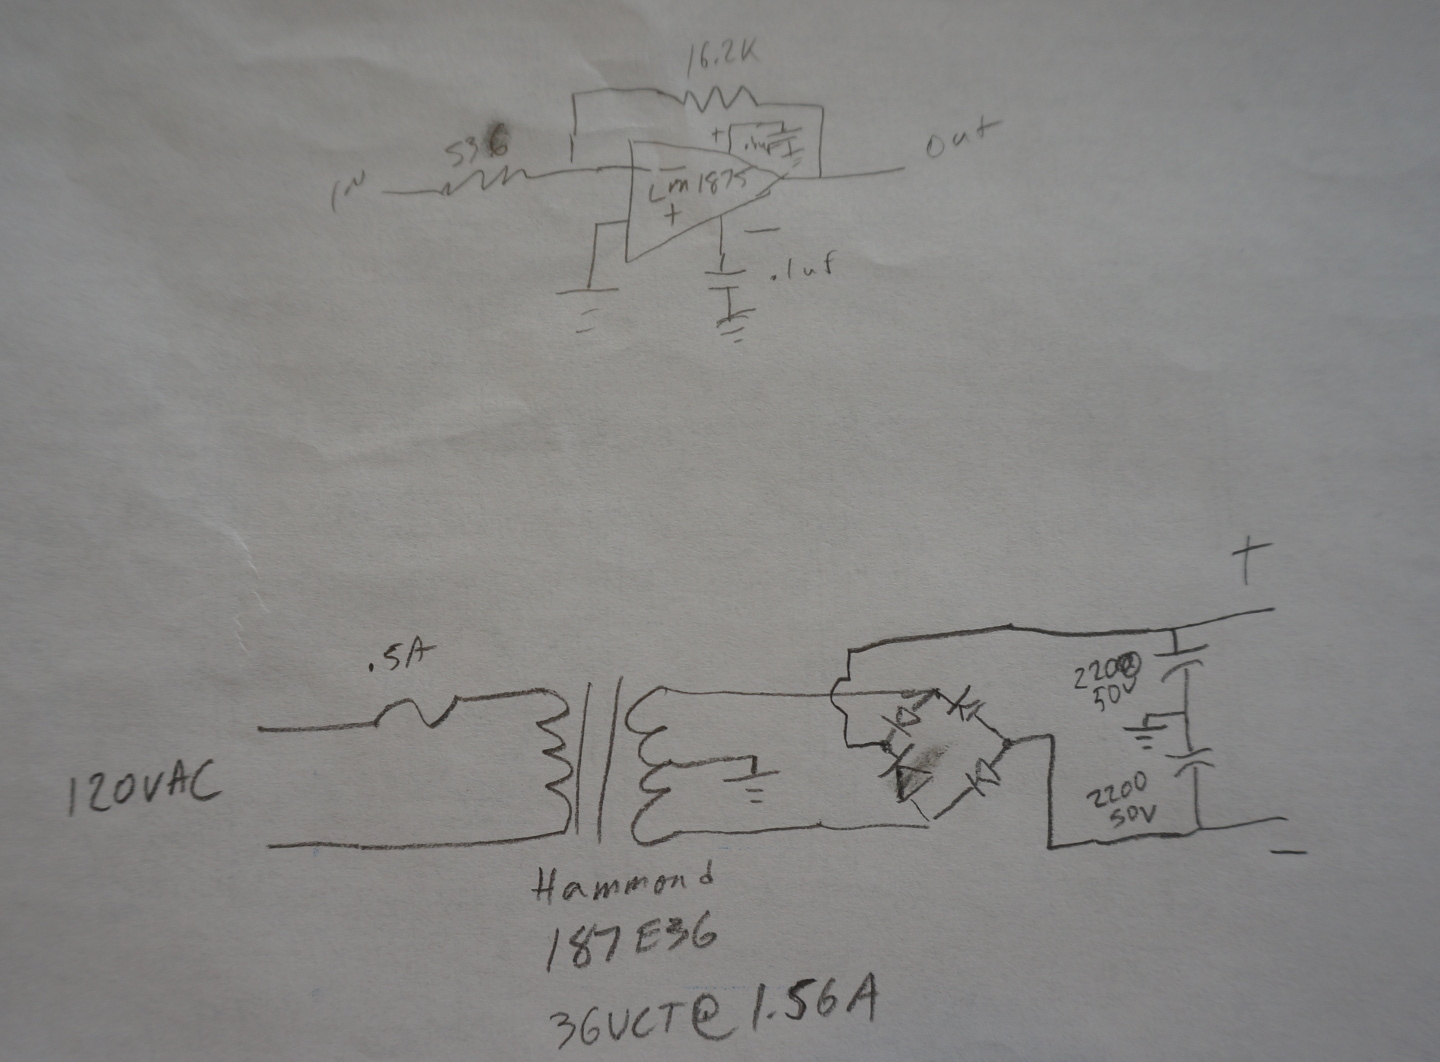 16.2K
+
.1uf
536
IN
Out
−
LM1875
+
−
.1uf
+
.5A
2200
50V
120VAC
2200
50V
−
Hammond
187E36
36VCT@ 1.56A